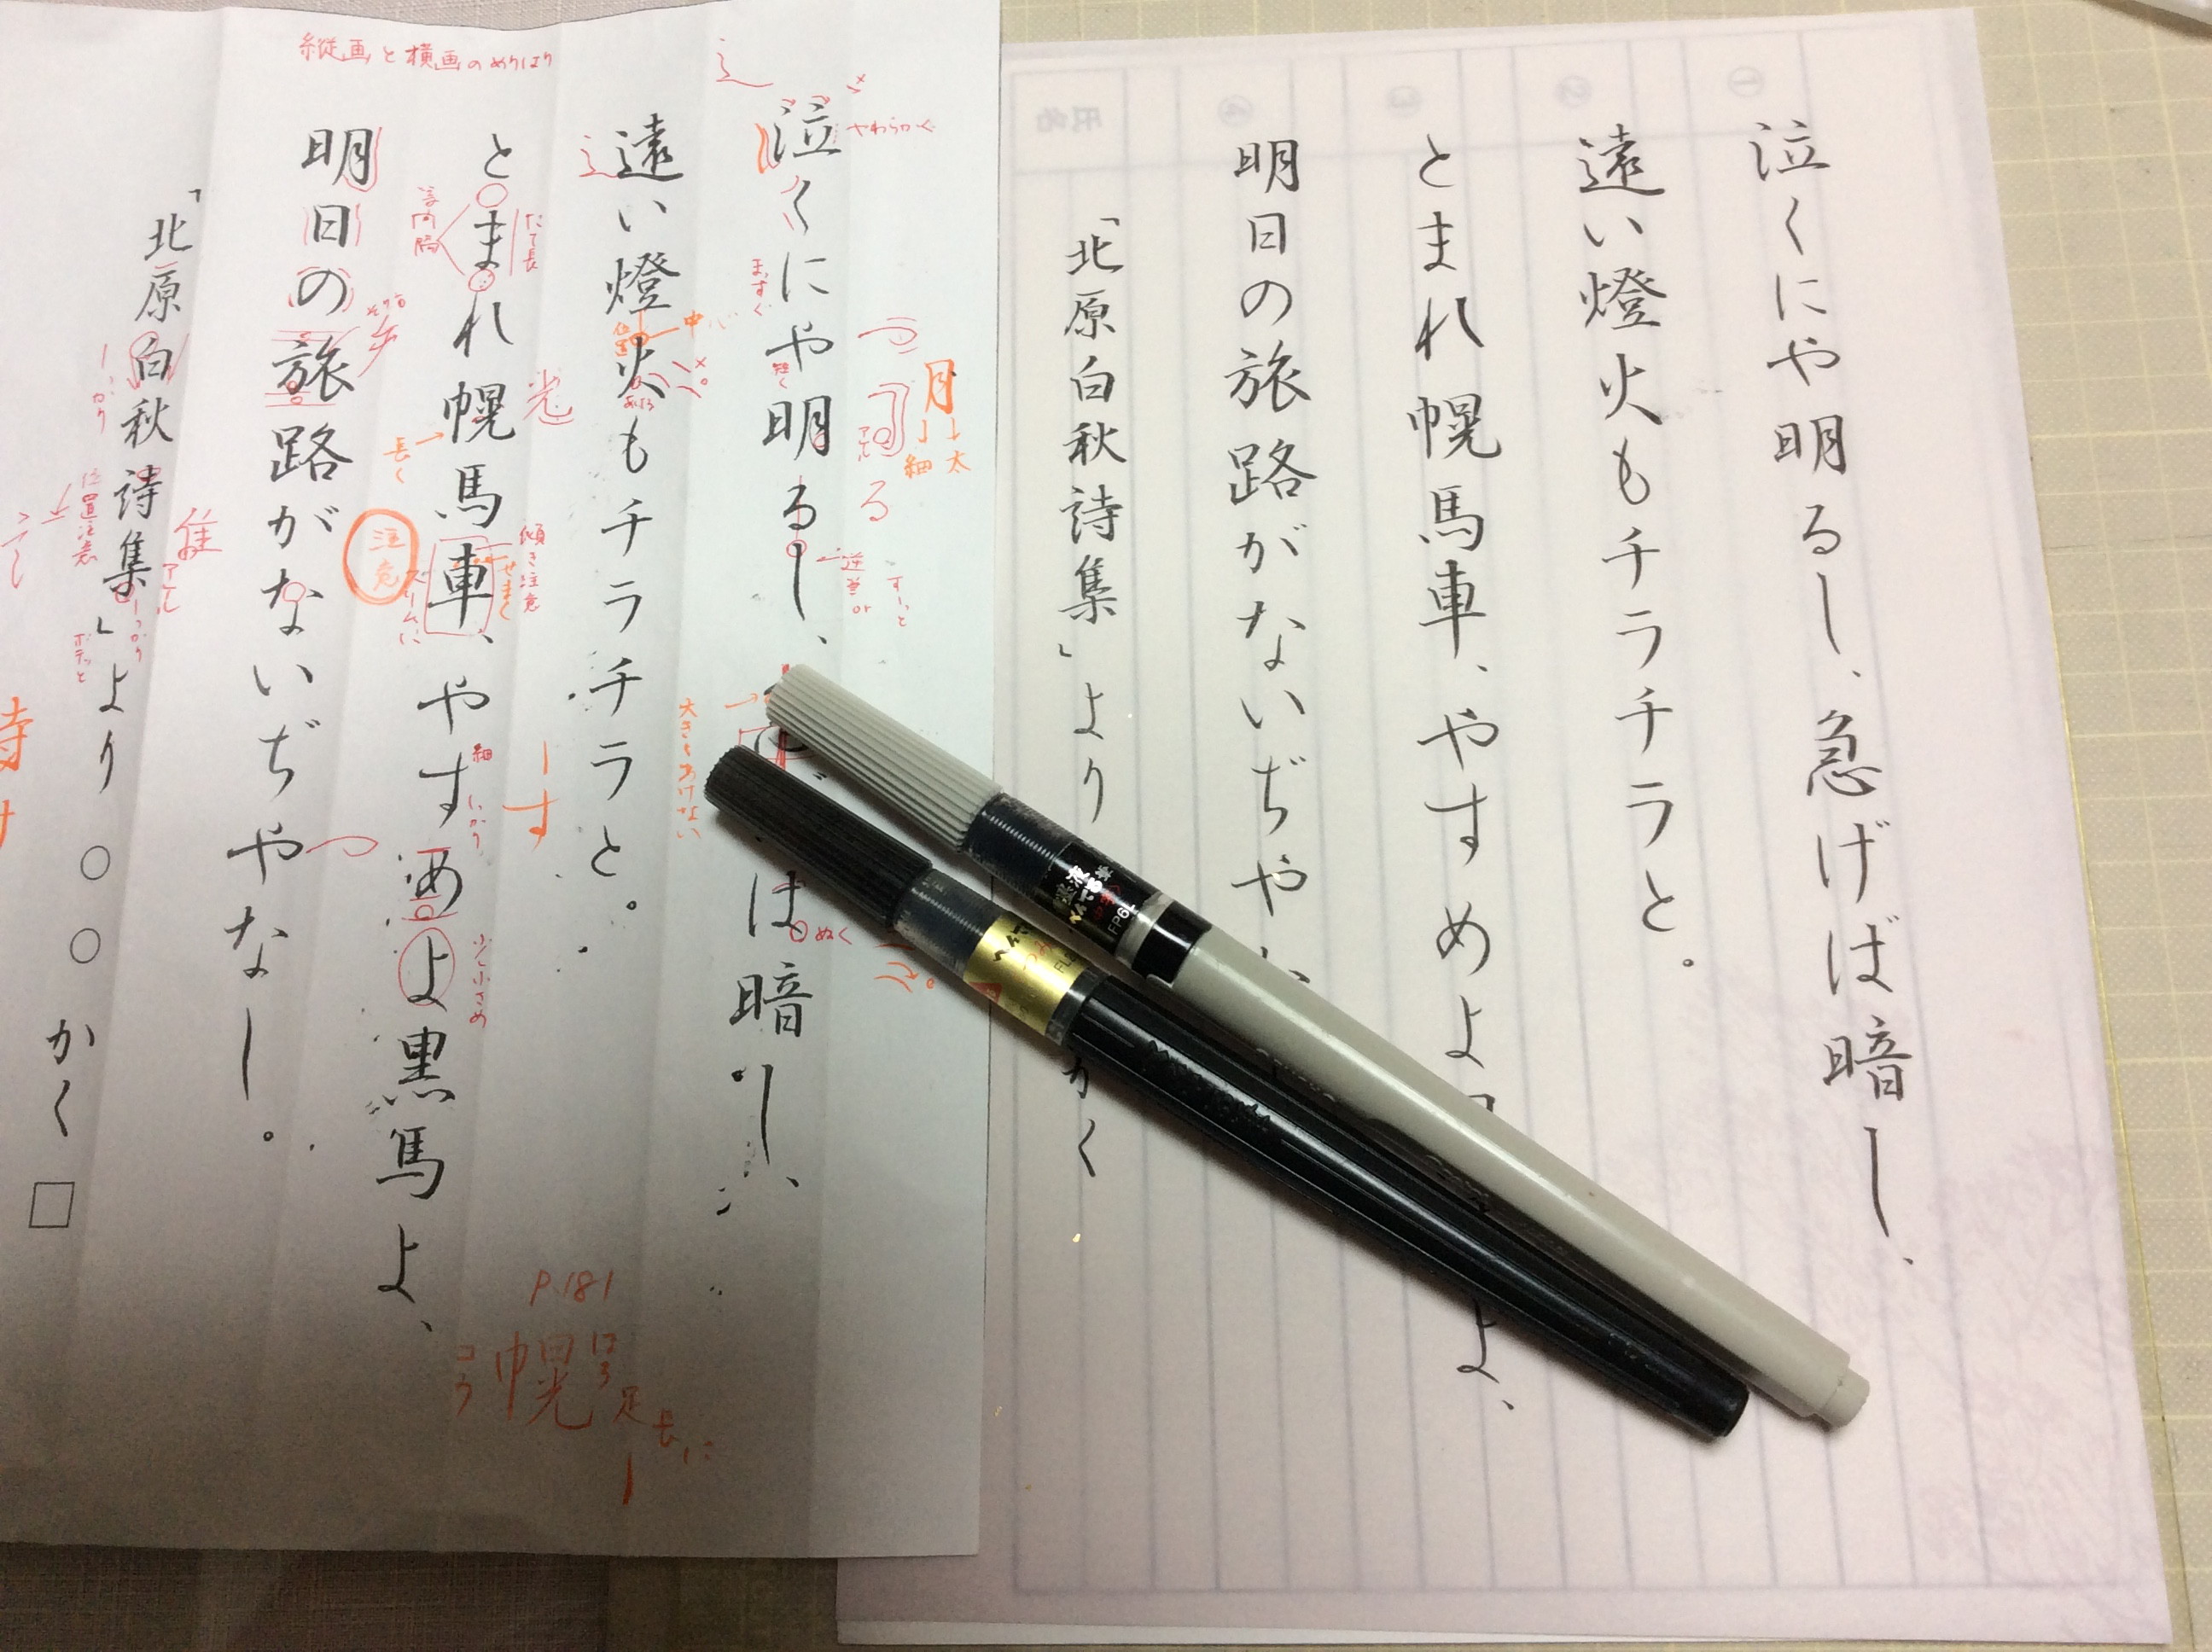 泣くにや明るし、急げば暗し、
遠い燈火もチラチラと。
とまれ幌馬車、やすめよ
よ、
明日の旅路がないぢや
「北原白秋詩集」より
かく
縦画と横画のめりはり
泣くにや明るし、
は暗し、
遠い燈火もチラチラと。
とまれ幌馬車、やすめよ黒馬よ、
明日の旅路がないぢやなし。
「北原白秋詩集」より○○かく□
やわらかく
まっすぐ
短く
月
細
太
る
逆筆or
すーっと
大きくあけない
ぬく
中心
位置
光
たて長
等間隔
長く
傾き注意
せまく
スリムに
注意
細
す
少し小さめ
位置注意
アケル
P.181
幌
足長に
FP6L